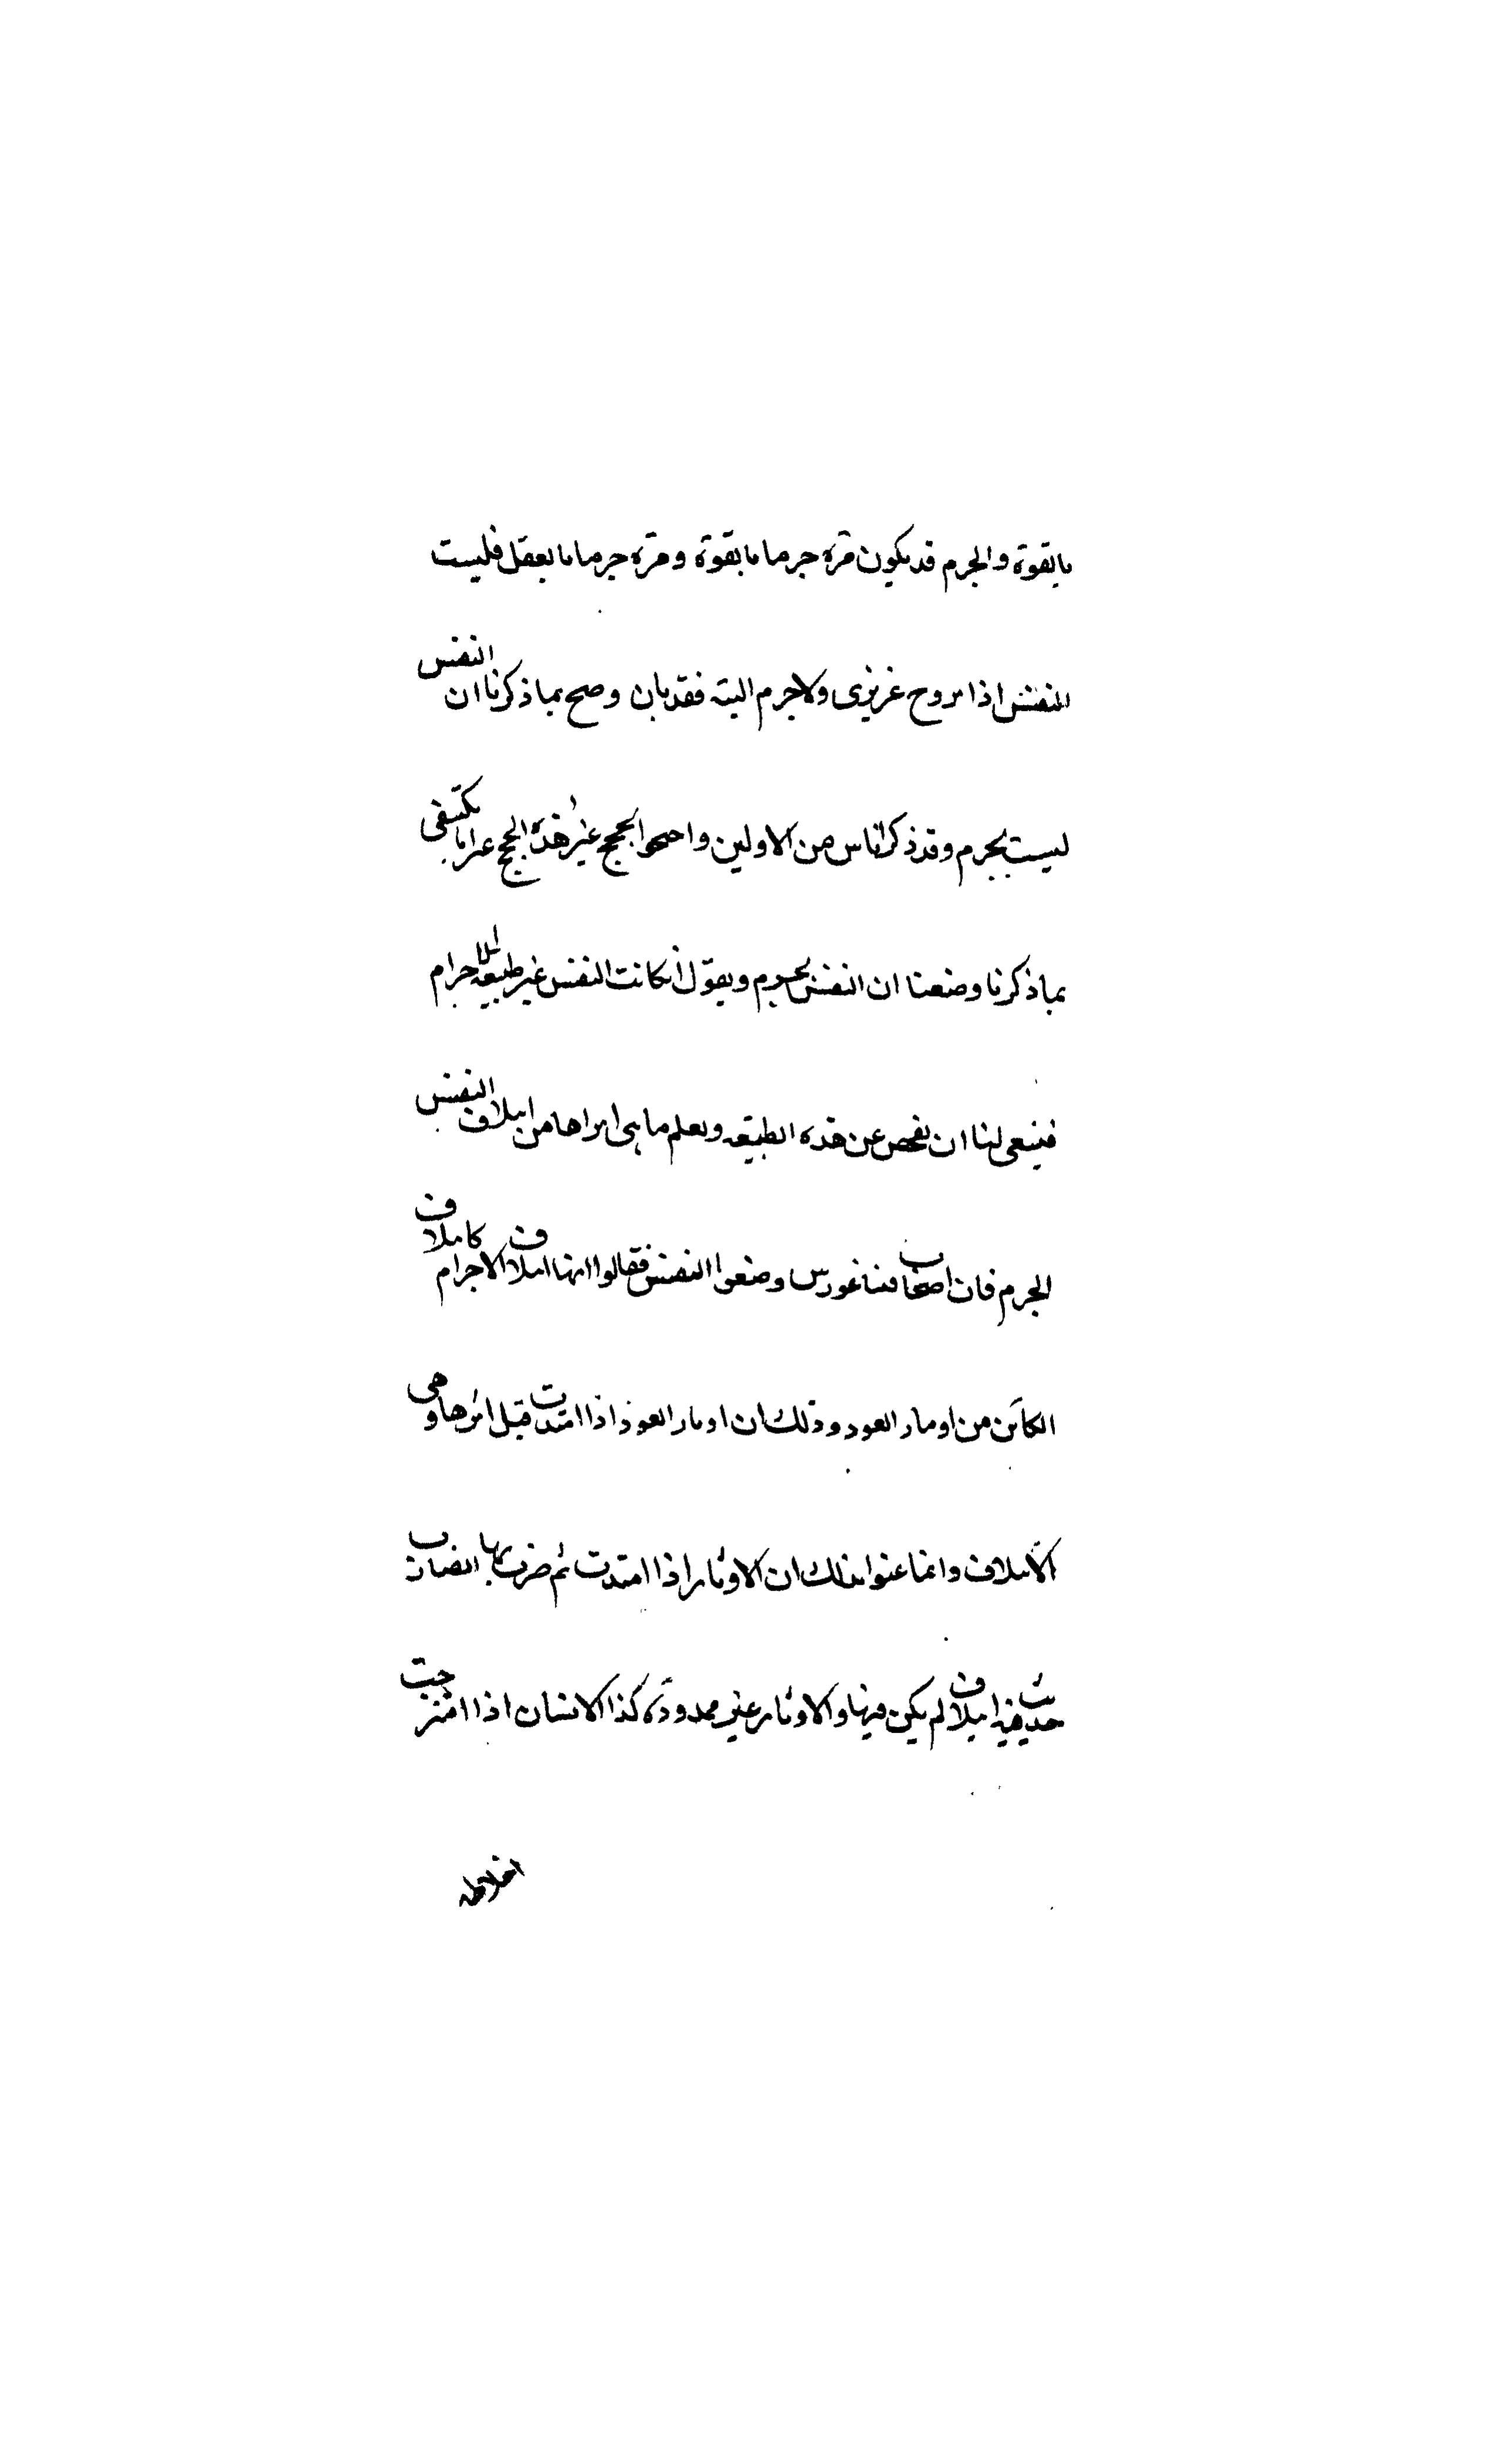 بالقوة والجرم قد يكون مرة جرما ما بقوة ومرة جرما ما بعقل فليست
النفس اذا بروح غريزى ولا جرم البتة فقد بان وصح بما ذكرنا ان النفس
ليست بجرم وقد ذكر اناس من الاولين واحتجوا بحجج غير هذه الحجج غير انا نكتفى
بما ذكرنا وصنعنا ان النفس بجرم ويقول ان كانت النفس غير طبيعة الاجرام
فينبغى لنا ان نفحص عن هذه الطبيعة ونعلم ما هى اتراها من ايتلاف النفس
الجرم فان اصحاب فيثاغورس وصفوا النفس فقالوا انها ايتلاف الاجرام كايتلاف
الكائن من اوتار العود وذلك ان اوتار العود اذا امتدت قبل اثرها وهى
الايتلاف وانما عنوا بذلك ان الاوتار اذا امتدت ثم ضرب بها الضارب
حدث فيه ايتلاف لم يكن فيها والاوتار غير ممدودة كذا الانسان اذا امتزجت
اخلاطه